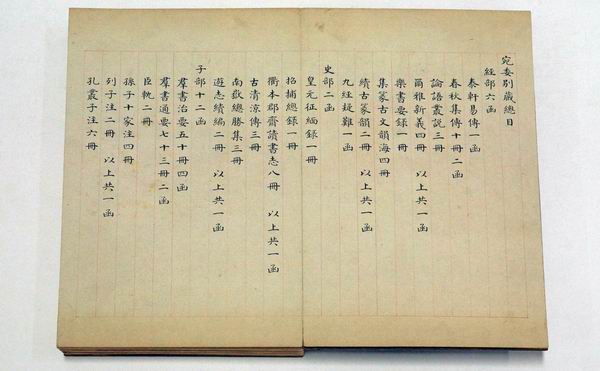 宛委別藏總目
經部六函
泰軒易傳一函
春秋集傳十冊二函
論語叢說三冊
爾雅新義四冊 以上共一函
樂書要錄一冊
集篆古文韻海四冊
續古篆韻二冊 以上共一函
九經疑難一函
史部二函
皇元征緬錄一冊
招捕總錄一冊
衢本郡齋讀書志八冊 以上共一函
古清涼傳三冊
南嶽總勝集三冊
遊志續編二冊 以上共一函
子部十二函
羣書治要五十冊四函
羣書通要七十三冊二函
臣軌二冊
孫子十家注四冊
列子注二冊 以上共一函
孔叢子注六冊